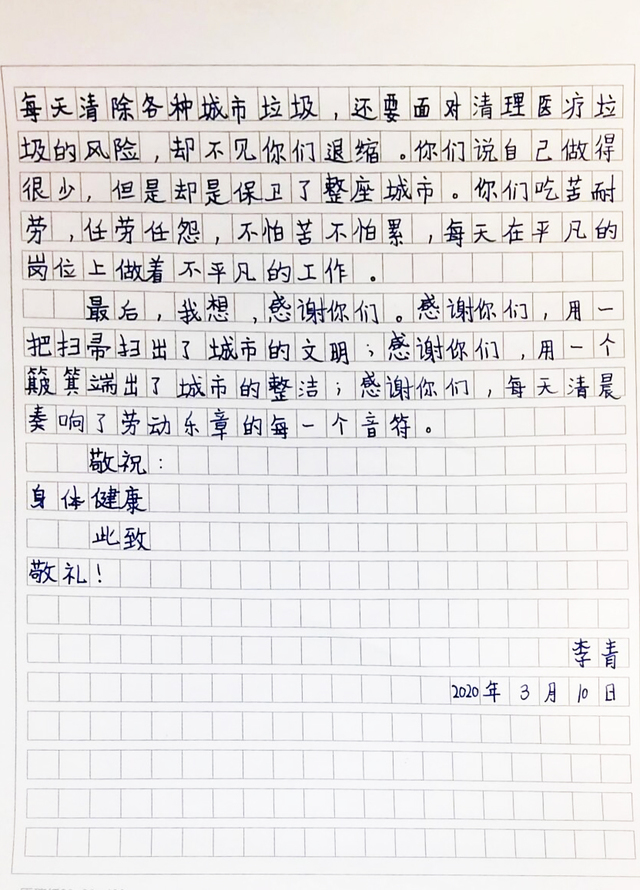 每天清除各种城市垃圾，还要面对清理医疗垃
圾的风险，却不见你们退缩。你们说自己做得
很少，但是却是保卫了整座城市。你们吃苦耐
劳，任劳任怨，不怕苦不怕累，每天在平凡的
岗位上做着不平凡的工作。
最后，我想，感谢你们。感谢你们，用一
把扫帚扫出了城市的文明；感谢你们，用一个
簸箕端出了城市的整洁；感谢你们，每天清晨
奏响了劳动乐章的每一个音符。
敬祝：
身体健康
此致
敬礼！
李青
2020年3月10日